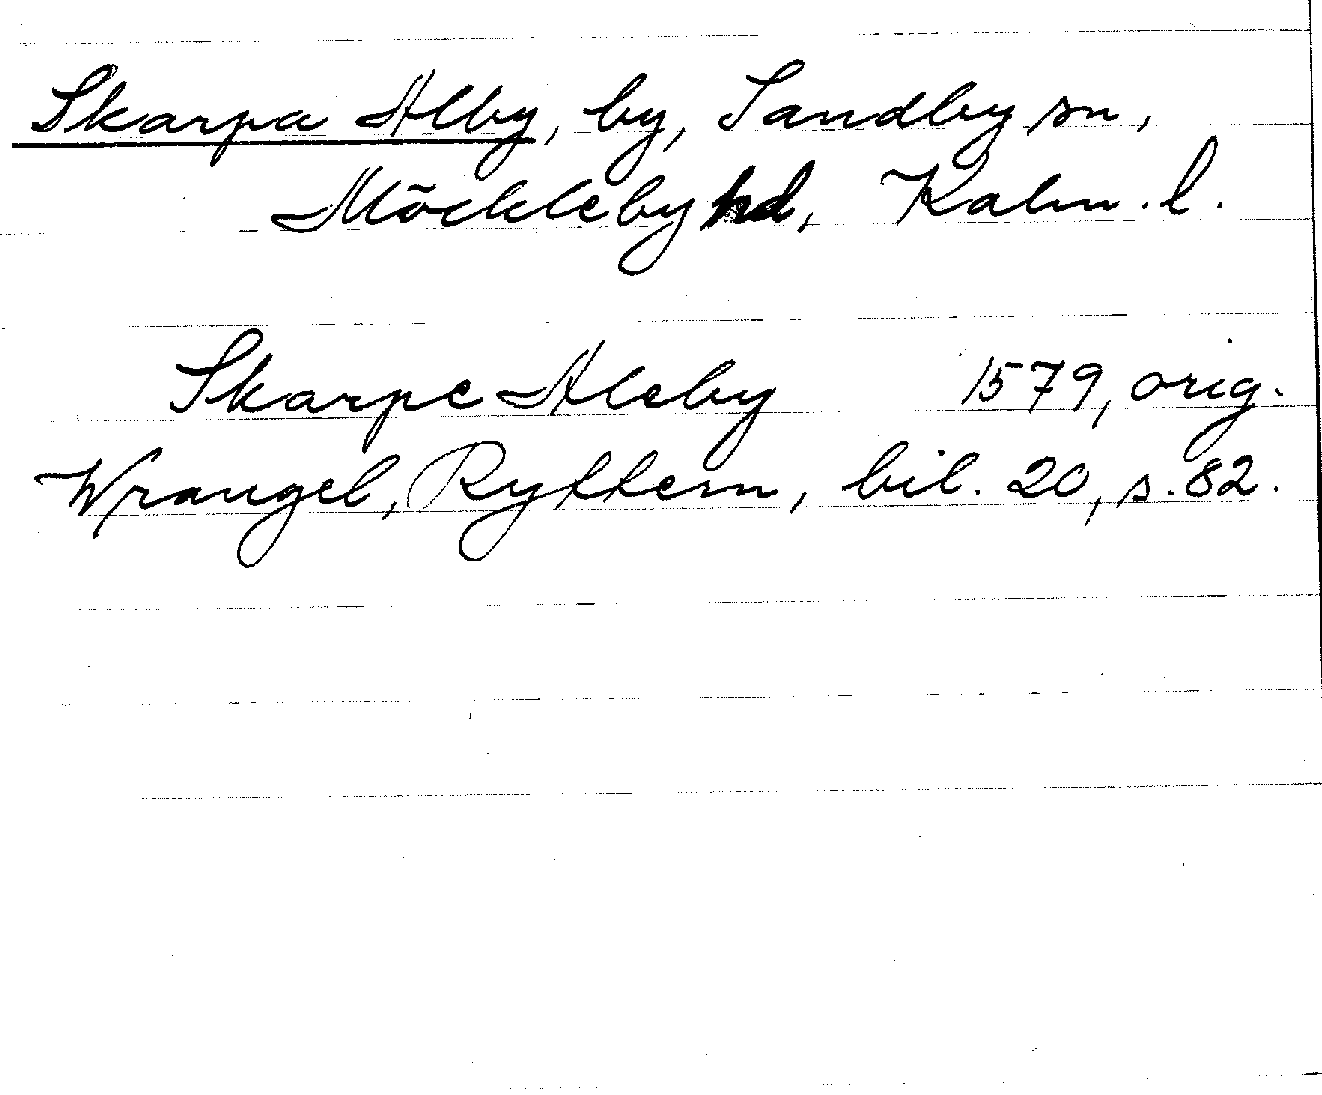 Skarpa Alby, by, Sandby sn,
Möckleby hd, Kalm. l.
Skarpe Aleby 1579, orig.
Wrangel, Ryttern, bil. 20, s. 82.